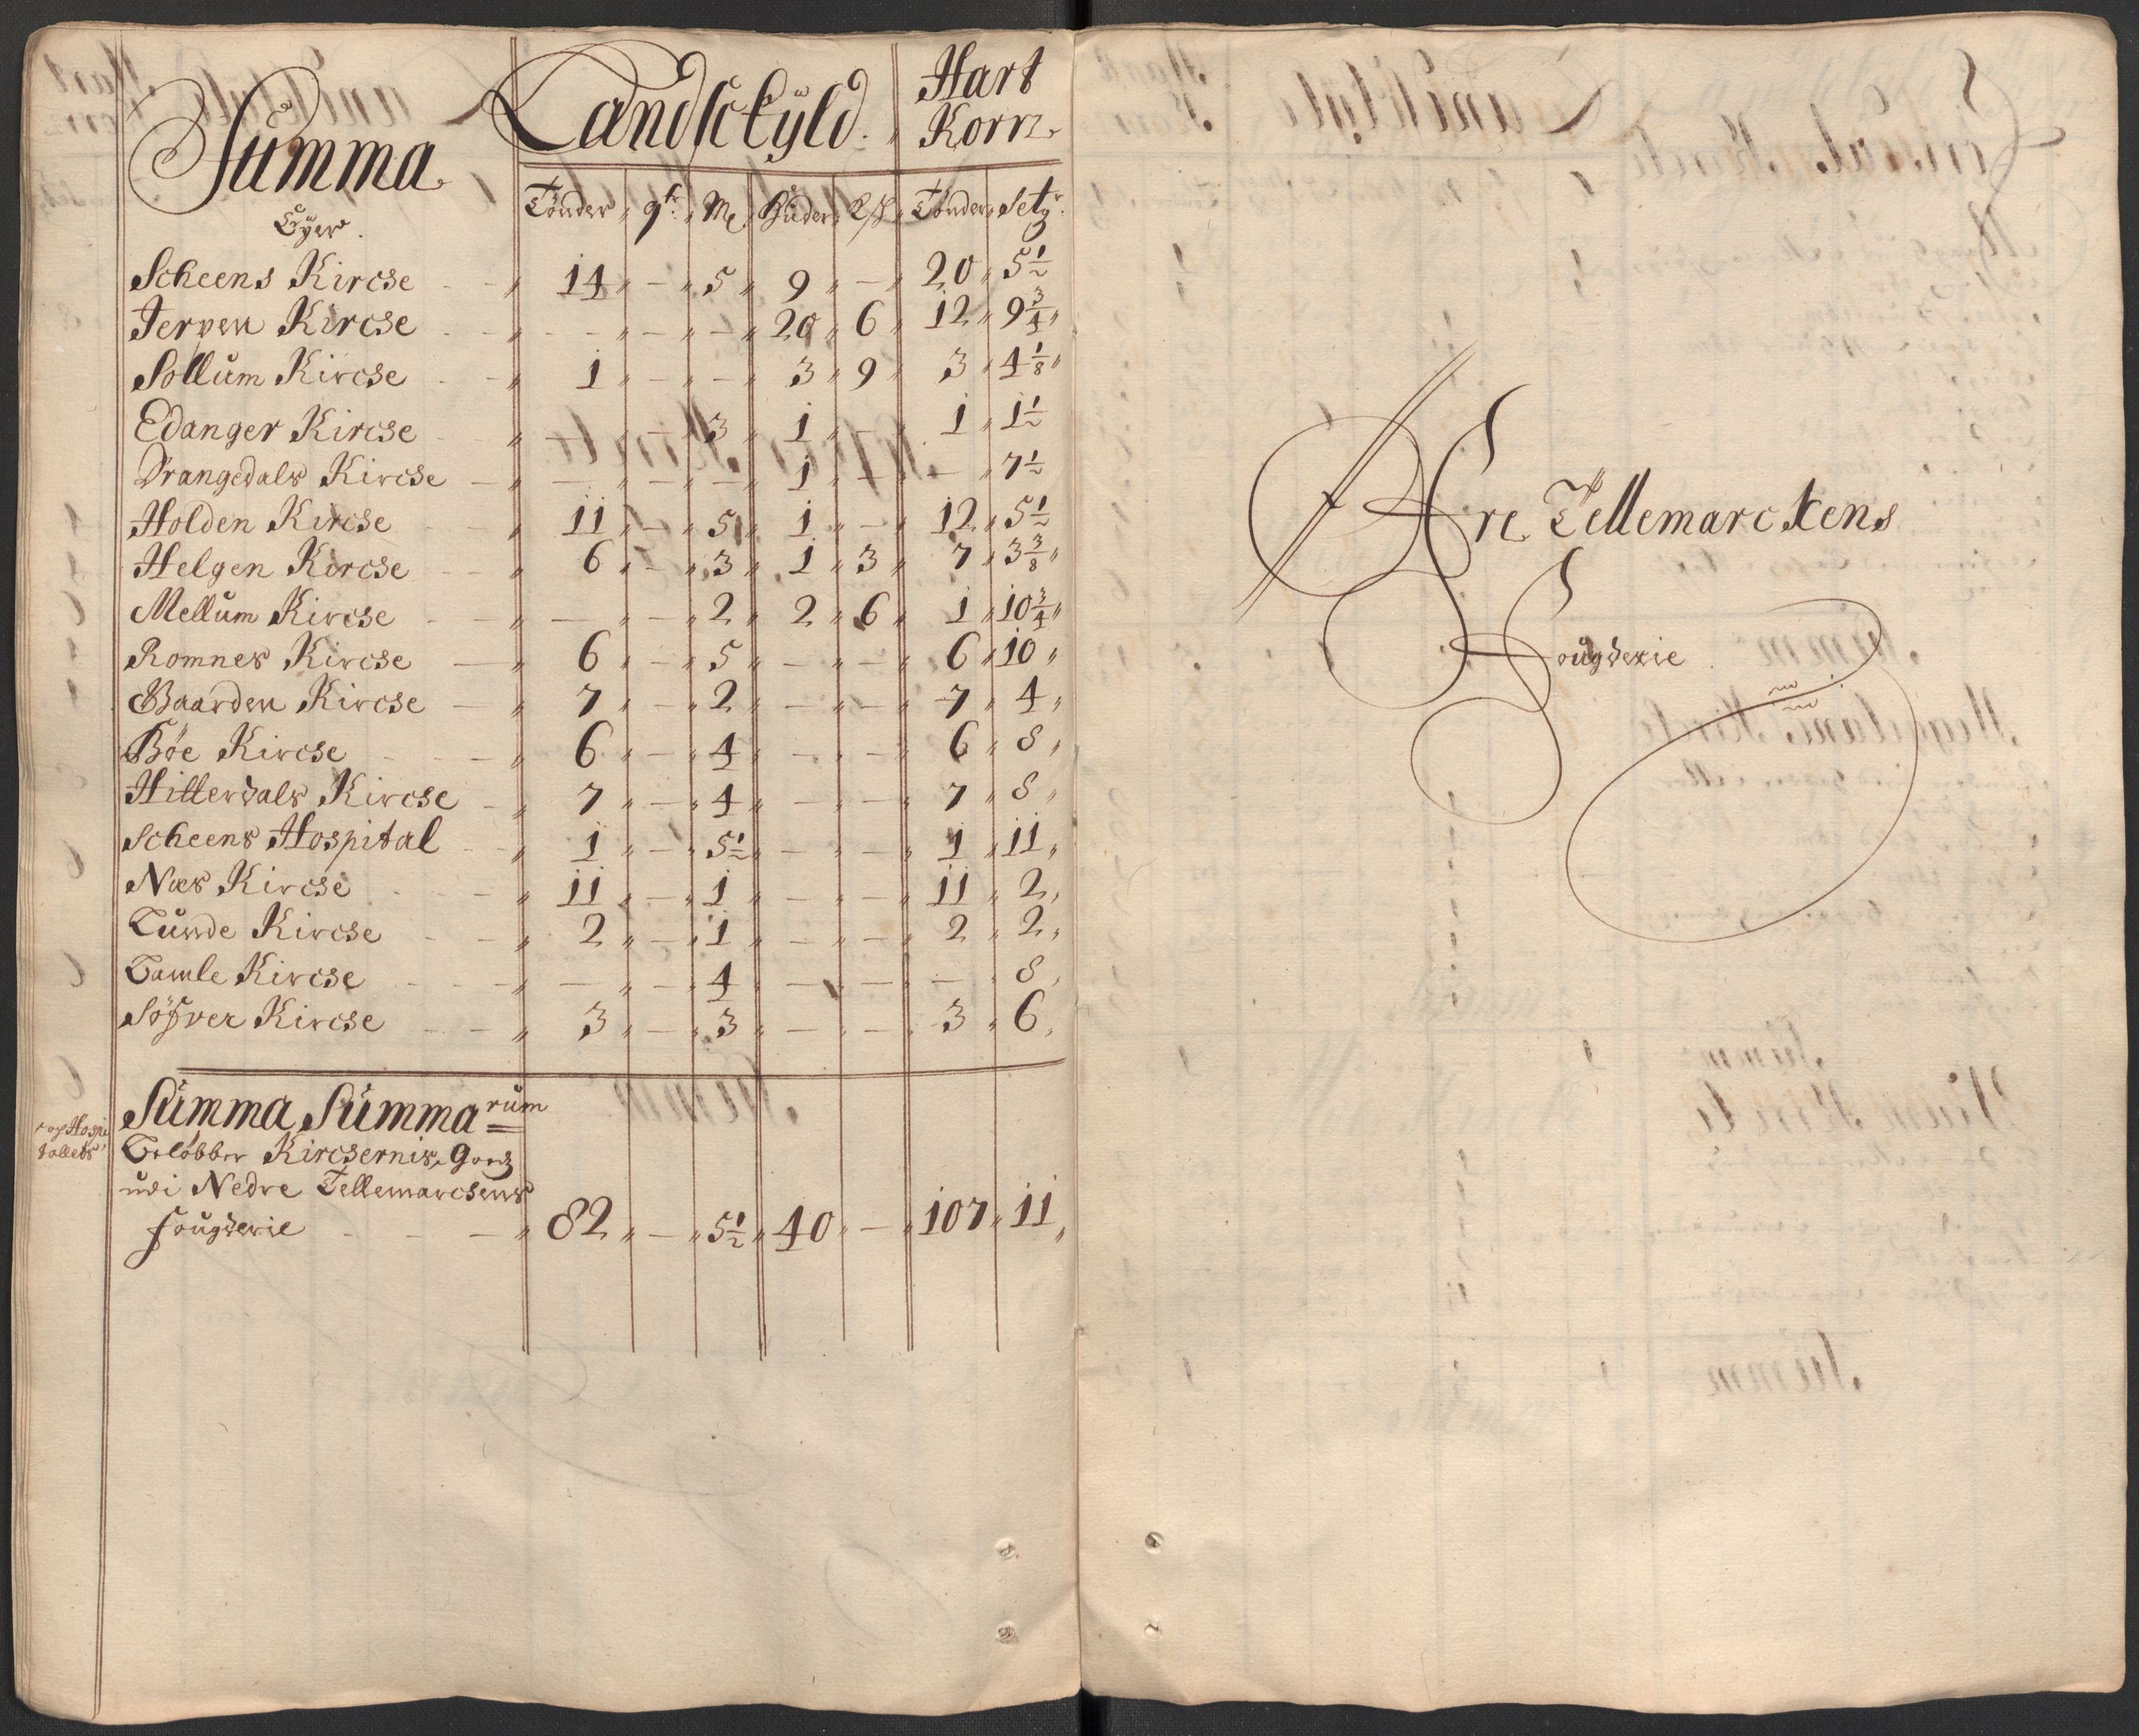 Summa Landschyld. Hart Korn
Eyer Tönder qr. Me Huder L/S Tönder Setgr.
Scheens Kircke 14 - 5 9 - 20 5 1/2
Jerpen Kircke - - - 20 6 12 9 3/4
Sollum Kircke 1 - - 3 9 3 4 1/8
Edanger Kircke - - 3 1 - 1 1 1/2
Drangedals Kircke - - - 1 - - 7 1/2
Holden Kircke 11 - 5 1 - 12 5 1/2
Helgen Kircke 6 - 3 1 3 7 3 3/8
Mellum Kircke - - 2 2 6 1 10 3/4
Romnes Kircke 6 - 5 - - 6 10
Baarden Kircke 7 - 2 - - 7 4
Bøe Kircke 6 - 4 - - 6 8
Hitterdals Kircke 7 - 4 - - 7 8
Scheens Hospital 1 - 5 1/2 - - 1 11
Næs Kircke 11 - 1 - - 11 2
Lunde Kircke 2 - 1 - - 2 2
Bamle Kircke - - 4 - - - 8
Söfver Kircke 3 - 3 - - 3 6
Summa Summarum
og Hospitallets
Beløbber Kirckernis Goedz
udi Nedre Tellemarckens
fougderie 82 - 5 1/2 40 - 107 11
Øfre Tellemarckens
Fougderie